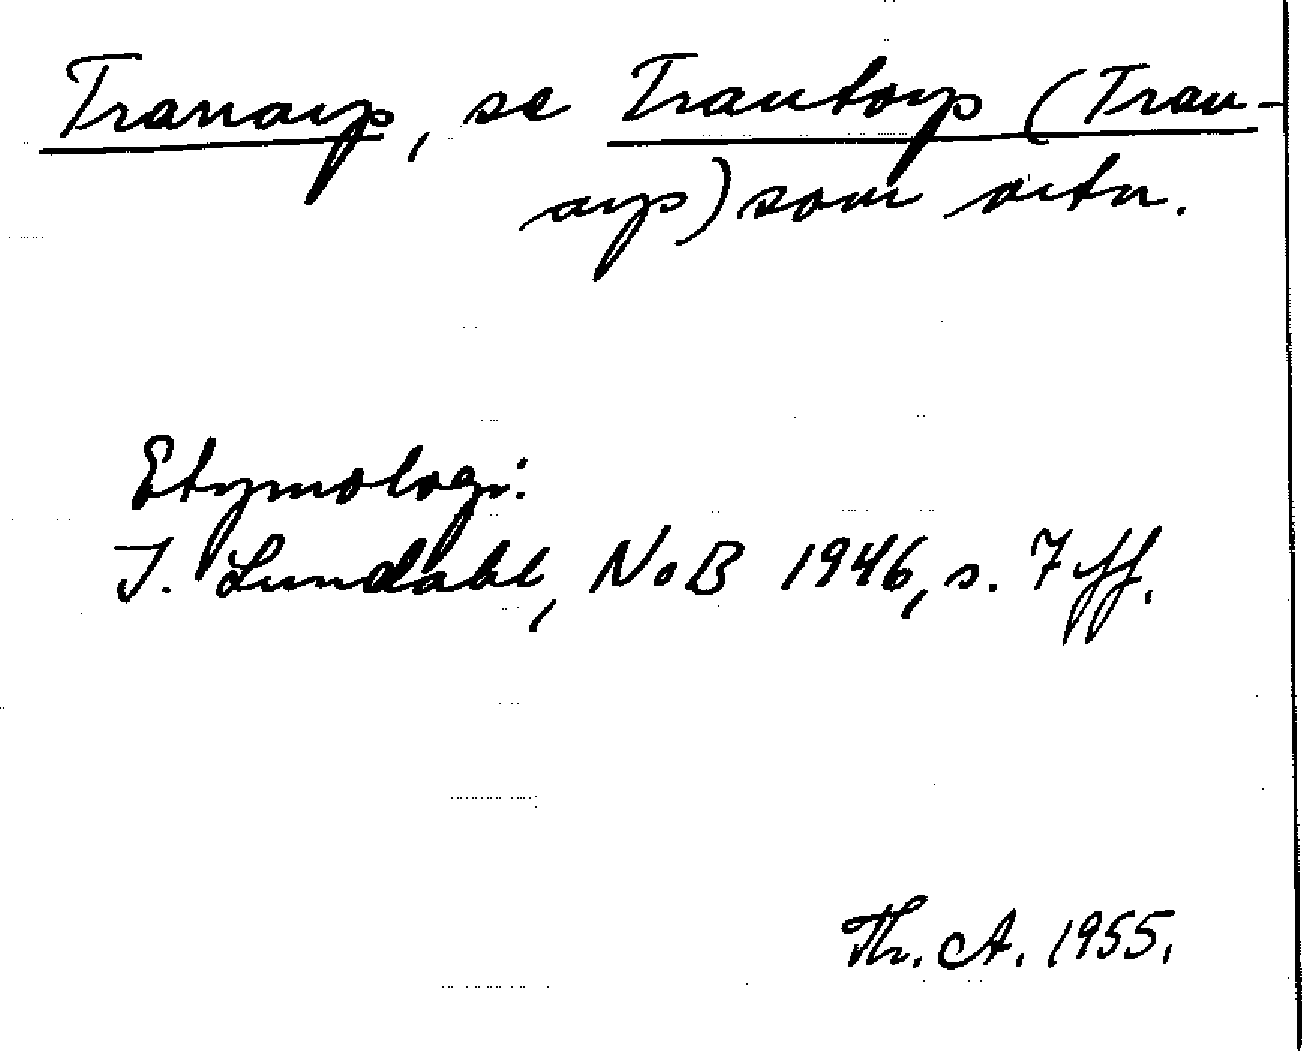 Tranarp, se Trantorp (Tran-
arp) som ortn.
Etymologi:
I. Lundahl, NoB 1946, s. 7 ff.
Th. A. 1955.